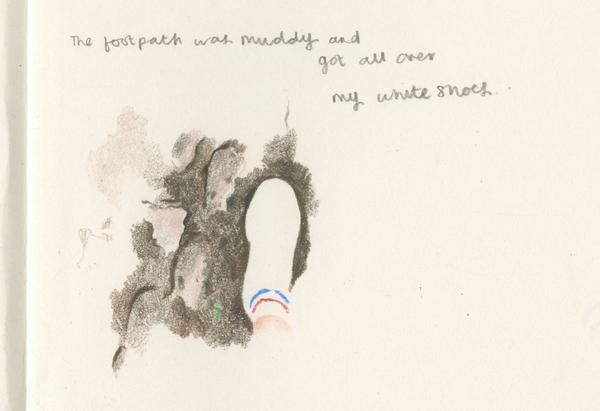 The footpath was muddy and
got all over
my white shoes.